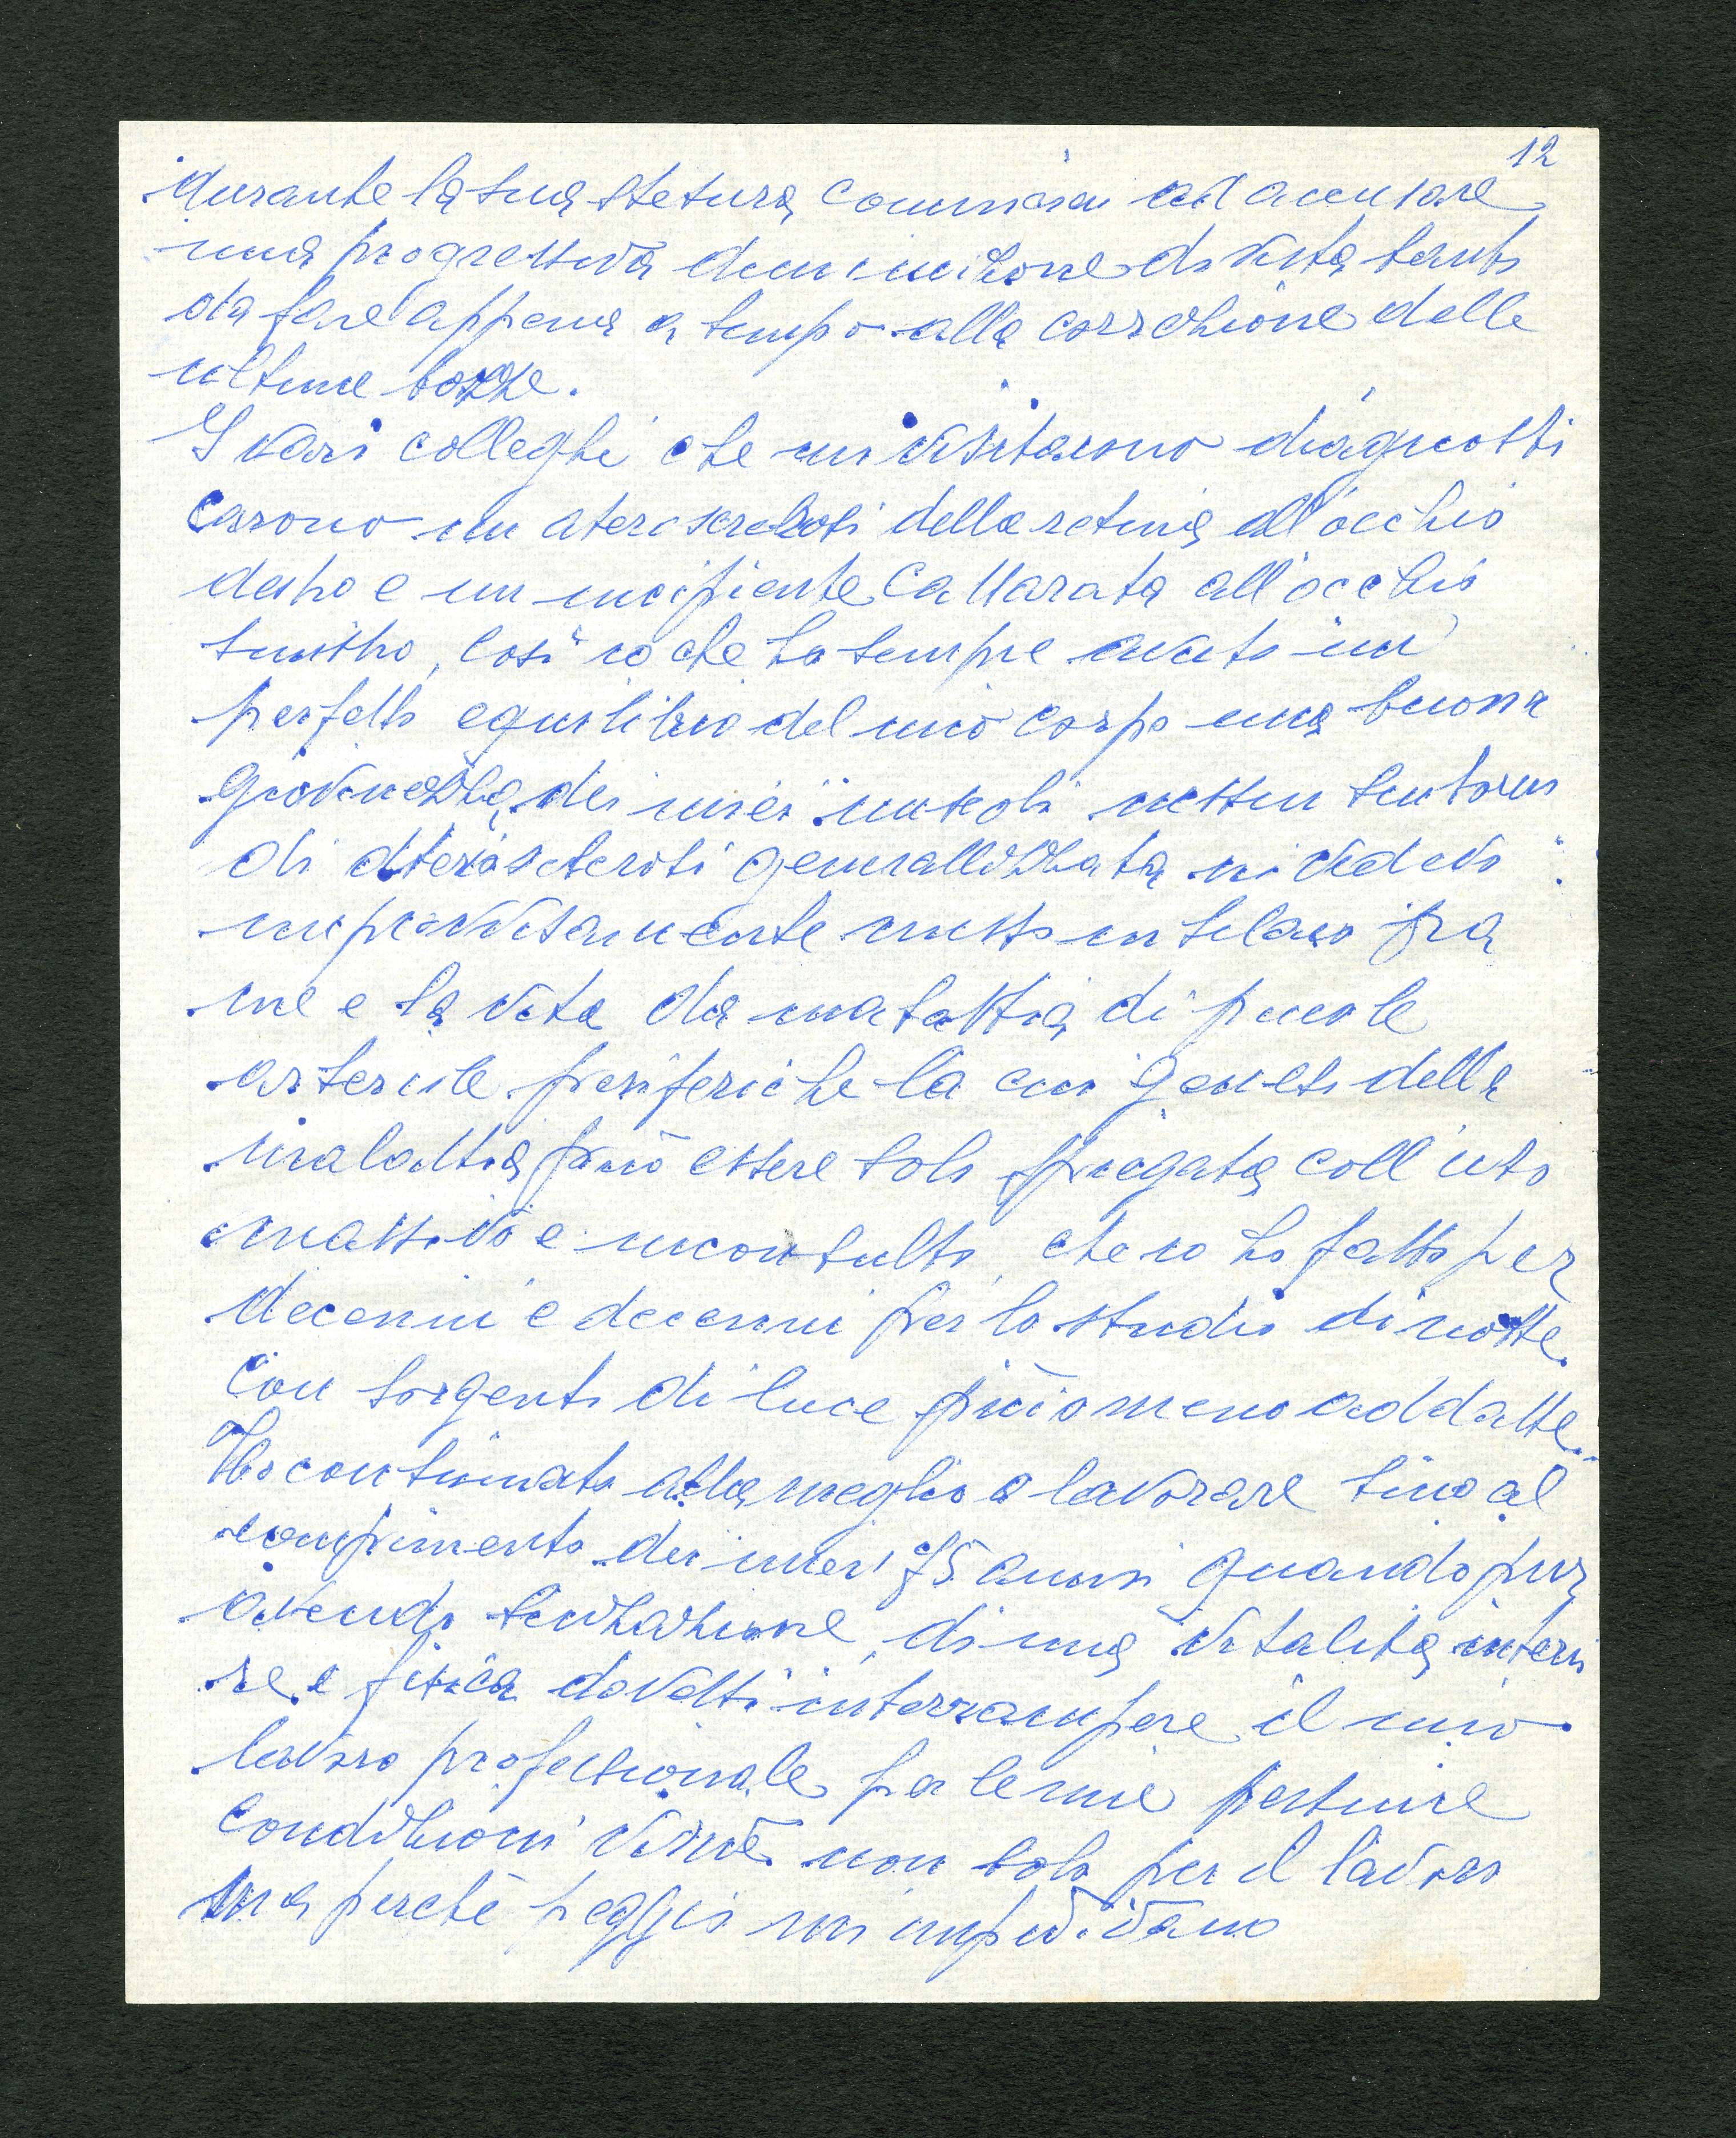 12
durante la sua stesura cominciai ad accusare
una progressiva diminuizione di vista tanto
da fare appena a tempo alla correzione delle
ultime bozze.
I vari colleghi che mi visitarono diagnosti
carono un aterosclerosi della retina all'occhio
destro e un incipiente cattarata all'occhio
sinistro, così io che ho sempre avuto un
perfetto equilibrio del mio corpo una buona
giovinezza dei miei muscoli nessun sintomo
di aterosclerosi generallizzata mi vedevo
improvvisamente messo in silenzio fra
me e la vita da malattia di piccole
arteriole periferiche la cui genesi della
malattia può essere solo spiegata coll'uso
massivo e inconsulto, che io ho fatto per
decenni e decenni per lo studio di notte
con sorgenti di luce più o meno addatte.
Ho continuato alla meglio a lavorare sino al
compimento dei miei 75 anni quando pur
avendo sensazione di una vitalità interi
re e fisica dovetti interrompere il mio
lavoro professionale per le mie pessime
condizioni visive non solo per il lavoro
ma perchè peggio mi impedivano